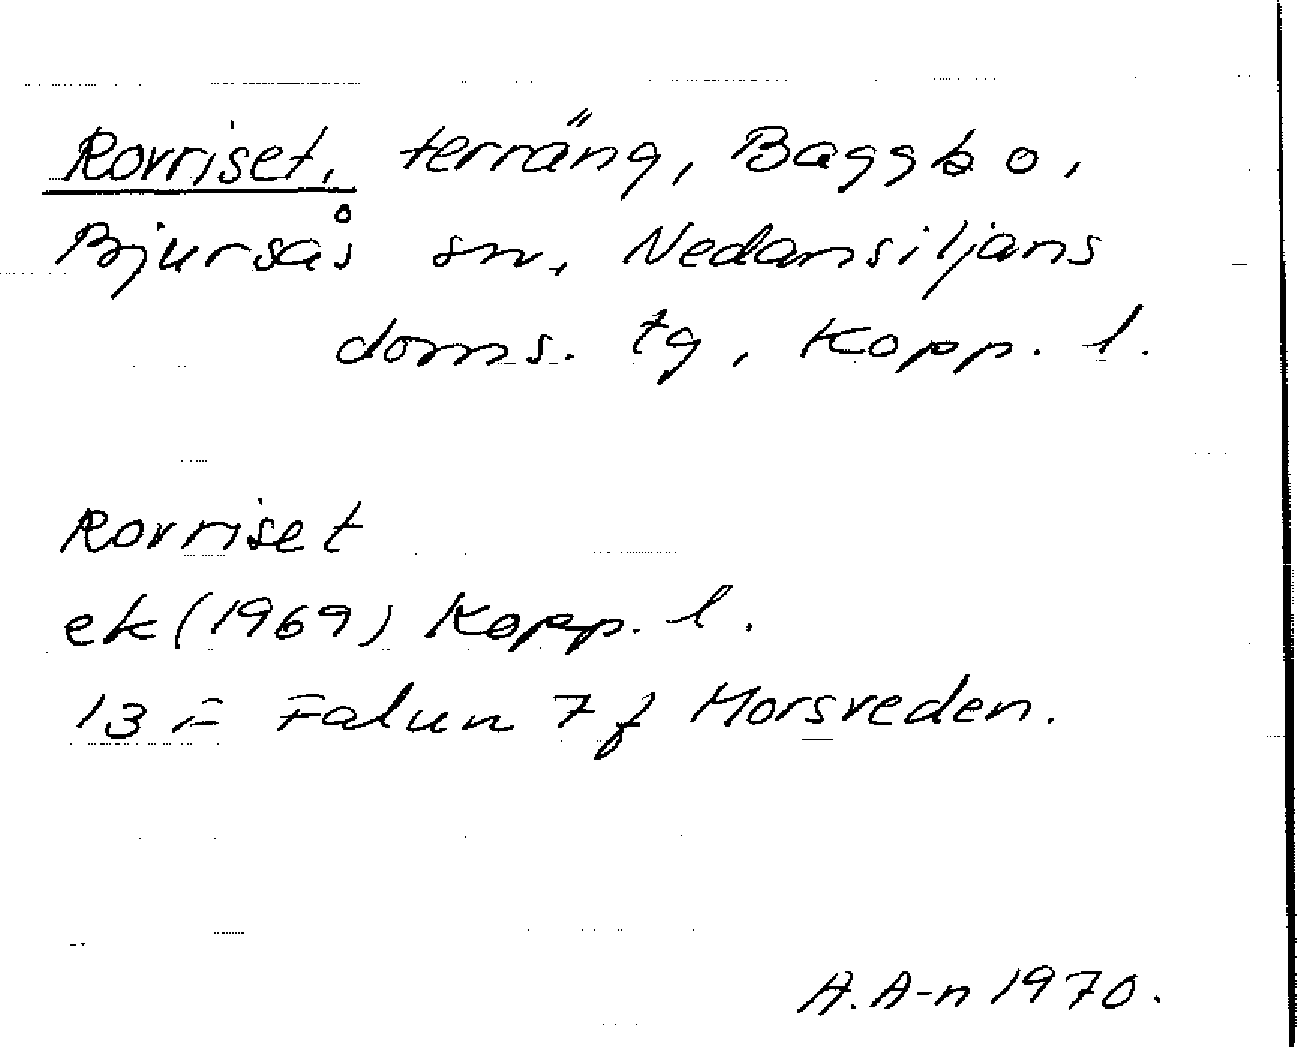 Rovriset, terräng, Baggbo,
Bjursås sn, Nedansiljans
doms. tg, Kopp. l.
Rovriset
ek (1969) Kopp. l.
13 F Falun 7 f Morsveden.
A. A-n 1970.